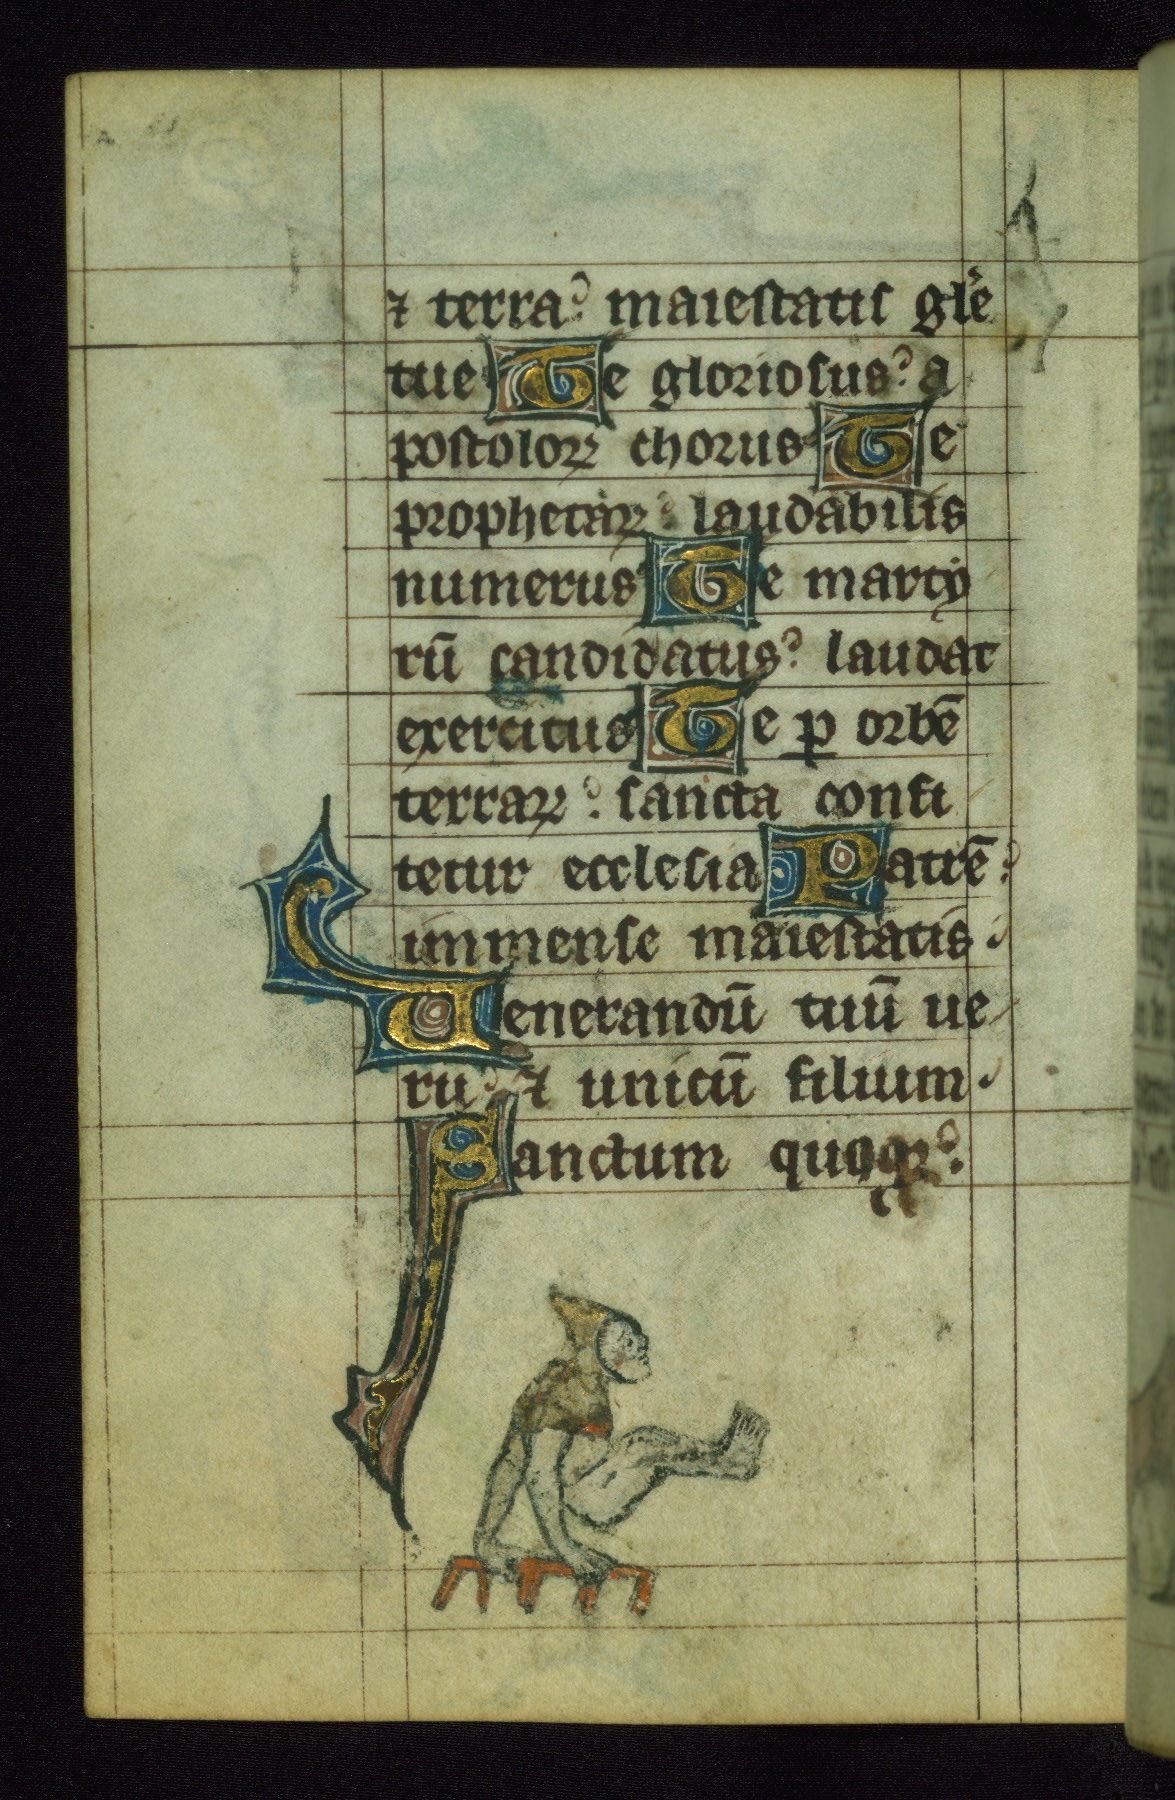 ⁊ terra? maiestatis gl̃e
tue Te gloriosus? a
postoloꝝ chorus Te
prophetaꝝ? laudabilis
numerus Te marty
rũ candidatus? laudat
exercitus Te ꝑ orbẽ
terraꝝ? sancta confi
tetur ecclesia Patrẽ?
immense maiestatis.
Uenerandũ tuũ ue
rũ? ⁊ unicũ filium.
Sanctum quoqꝫ?